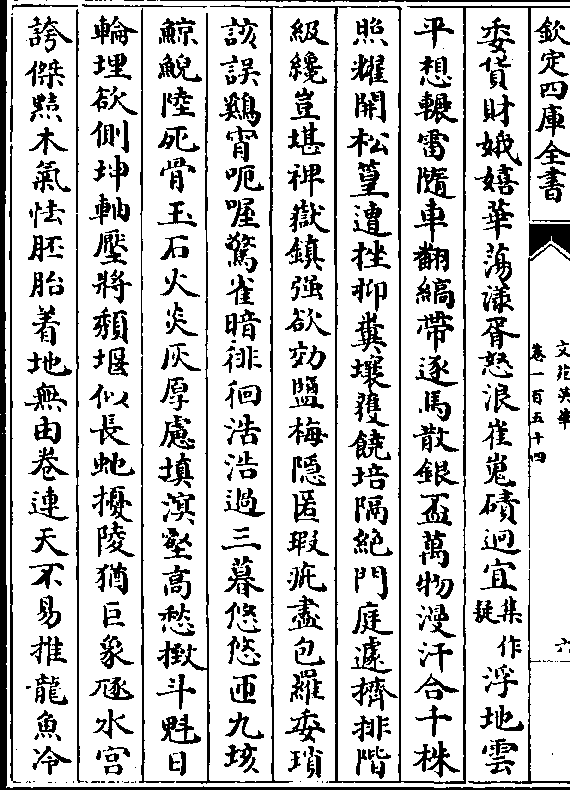 欽定四庫全書
文苑英華
卷一百五十四
六
委貨財娥嬉華蕩漾胥怒浪崔嵬磧迥宜集作疑浮地雲
平想輾雷隨車翻縞帶逐馬散銀盃萬物漫汗合千株
照耀開松篁遭挫抑糞壤獲饒培隔絕門庭遽擠排階
級纔豈堪裨嶽鎮强欲効鹽梅隱匿瑕疵盡包羅委瑣
該誤鷄宵呃喔驚雀暗徘徊浩浩過三暮悠悠匝九垓
鯨鯢陸死骨玉石火炎灰厚慮填溟壑高愁㨖斗魁日
輪埋欲側坤軸壓將頹堰似長虵擾陵猶巨象豗水宮
誇傑黠木氣怯胚胎着地無由卷連天不易推龍魚冷